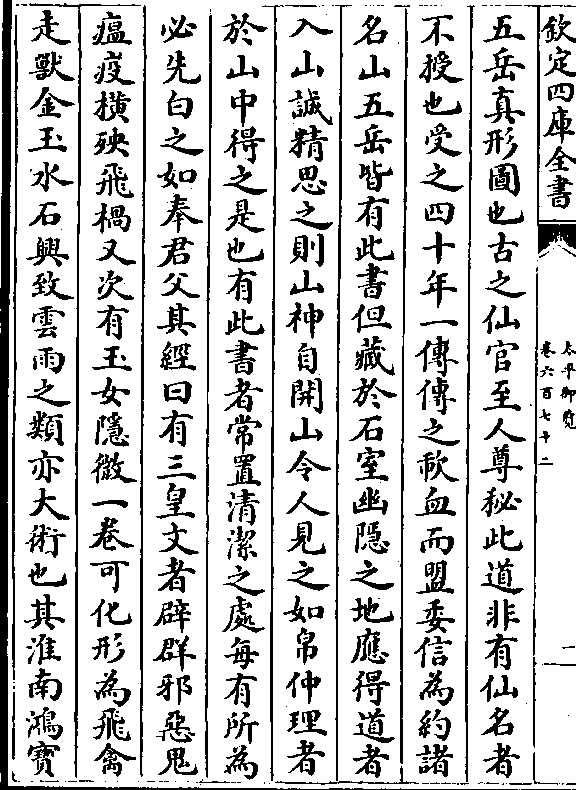 欽定四庫全書
太平御覽
卷六百七十二
二
五岳真形圖也古之仙官至人尊秘此道非有仙名者
不授也受之四十年一傳傳之歃血而盟委信為約諸
名山五岳皆有此書但藏於石室幽隱之地應得道者
入山誠精思之則山神自開山令人見之如帛仲理者
於山中得之是也有此書者常置清潔之處每有所為
必先白之如奉君父其經曰有三皇文者辟群邪惡鬼
瘟疫橫殃飛禍又次有玉女隱微一卷可化形為飛禽
走獸金玉水石興致雲雨之類亦大術也其淮南鴻寶